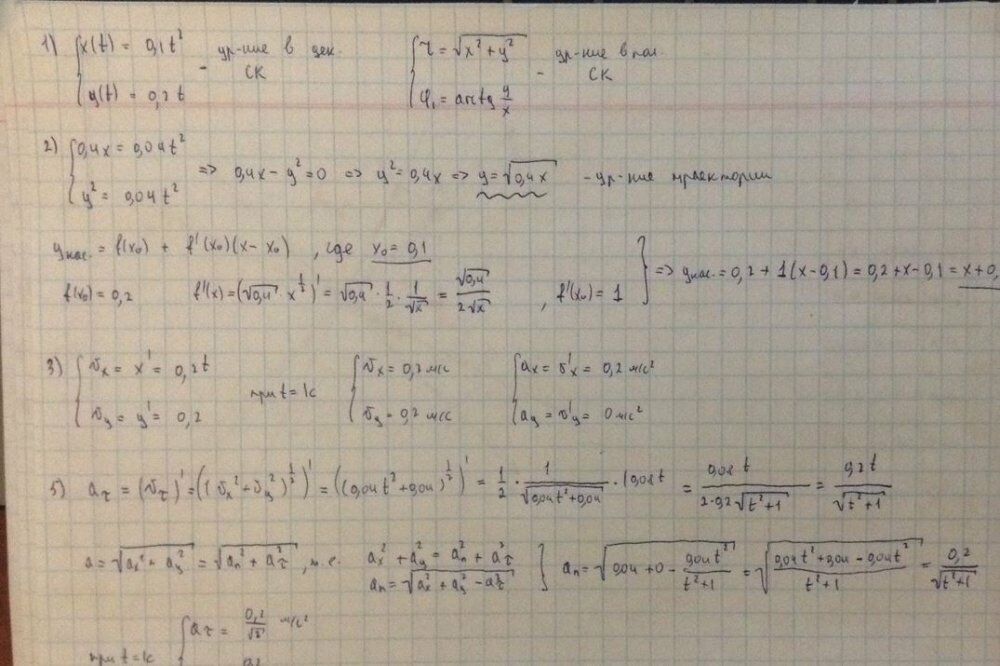 1) { x(t) = 0,1t² y(t) = 0,2t - ур-ние в дек. СК { r = √(x² + y²) φ, = arctg y/x - ур-ние в пол. СК
2) { 0,4x = 0,04t² y² = 0,04t² => 0,4x - y² = 0 => y² = 0,4x => y = √(0,4x) - ур-ние траектории
yкас. = f(x₀) + f'(x₀)(x - x₀) , где x₀ = 0,1
f(x₀) = 0,2 f'(x) = (√0,4 · x^(1/2))' = √0,4 · 1/2 · 1/√x = √0,4/(2√x) , f'(x₀) = 1 } => yкас. = 0,2 + 1(x - 0,1) = 0,2 + x - 0,1 = x + 0,
3) { vx = x' = 0,2t vy = y' = 0,2 при t = 1с { vx = 0,2 м/с vy = 0,2 м/с { ax = v'x = 0,2 м/с² ay = v'y = 0 м/с²
5) aτ = (vτ)' = ((vx² + vy²)^(1/2))' = ((0,04t² + 0,04)^(1/2))' = 1/2 · 1/√(0,04t² + 0,04) · 0,08t = 0,08t/(2·0,2√(t²+1)) = 0,2t/√(t²+1)
a = √(ax² + ay²) = √(an² + aτ²) , т.е. ax² + ay² = an² + aτ² an = √(ax² + ay² - aτ²) } an = √(0,04 + 0 - 0,04t²/(t²+1)) = √((0,04t² + 0,04 - 0,04t²)/(t²+1)) = 0,2/√(t²+1)
при t = 1с { aτ = 0,2/√2 м/с²